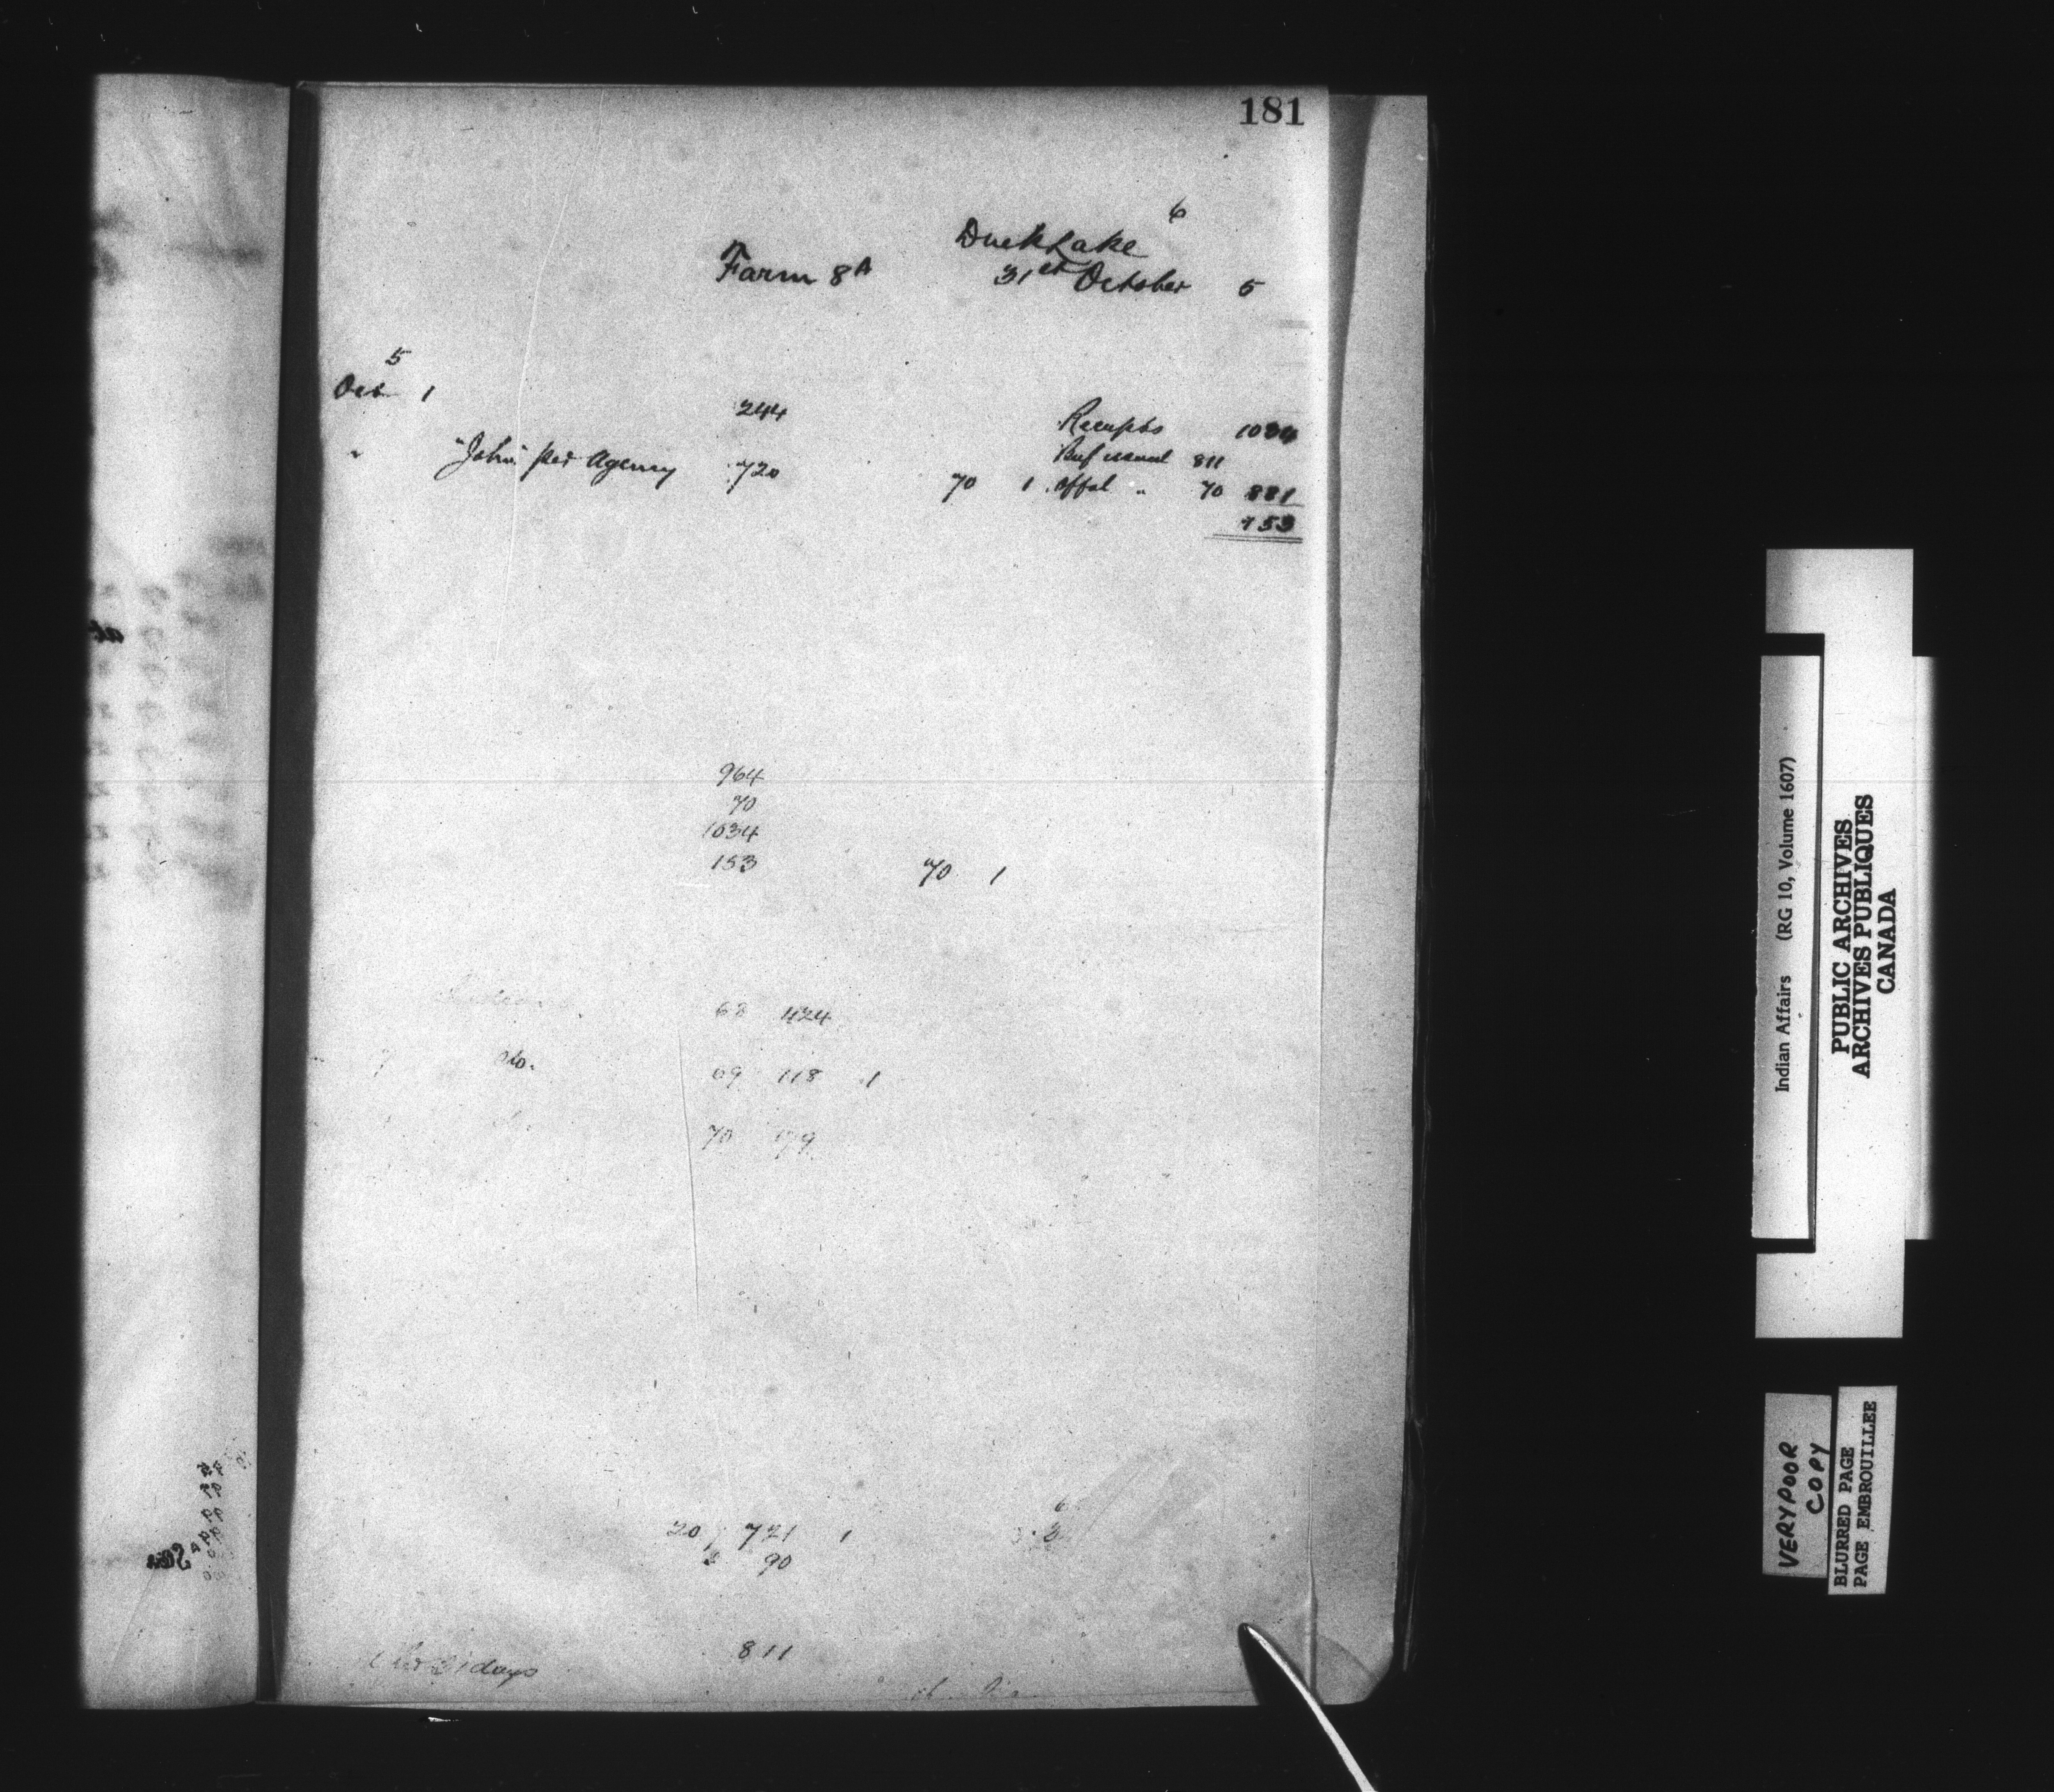 181
6
Duck Lake
Farm 8A 31st October 5
5
Oct 1
244 Receipts 1034
Beef issued 811
" "John" per Agency 720 70 1 offal " 70 881
153
964
70
1034
153 70 1
68 424
do. 69 118 1
70 179
20 721 1
2 90
811
days
Indian Affairs (RG 10, Volume 1607)
PUBLIC ARCHIVES
ARCHIVES PUBLIQUES
CANADA
VERY POOR
COPY
BLURED PAGE
PAGE EMBROUILLEE